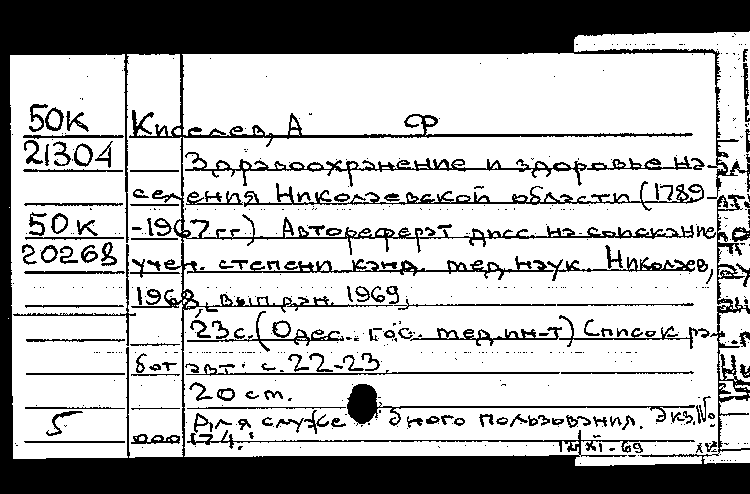 50К Киселев, А СФ
21304 Здравоохранение и здоровье на-
селения Николаевской области (1789-
50К -1967 гг). Автореферат дисс. на соискание
20268 учен. степени канд. мед. наук. Николаев,
1968, [вып. дан. 1969].
23 с. (Одес. гос. мед. ин-т) Список ра-
бот авт: с. 22-23.
20 см.
5 Для служебного пользования. Экз. №
000174.
12/XI-69 XV